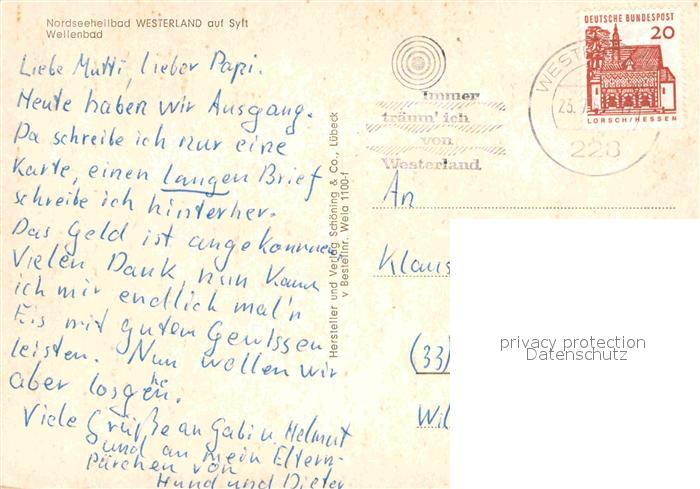 Nordseeheilbad WESTERLAND auf Sylt
Wellenbad
Liebe Mutti, lieber Papi.
Heute haben wir Ausgang.
Da schreibe ich nur eine
Karte, einen langen Brief
schreibe ich hinterher.
Das Geld ist angekommen,
Vielen Dank nun kann
ich mir endlich mal'n
Eis mit gutem Gewissen
leisten. Nun wollen wir
aber losgehen.
Viele Grüße an Gabi u. Helmut
und an mein Eltern-
pärchen von
Hund und Dieter
Hersteller und Verlag Schöning & Co., Lübeck
v Bestellnr. Wela 1100-f
Immer
träum' ich
von
Westerland
WESTER
23. 7
228
DEUTSCHE BUNDESPOST
20
LORSCH/HESSEN
An
Klaus
(33)
Wil
privacy protection
Datenschutz